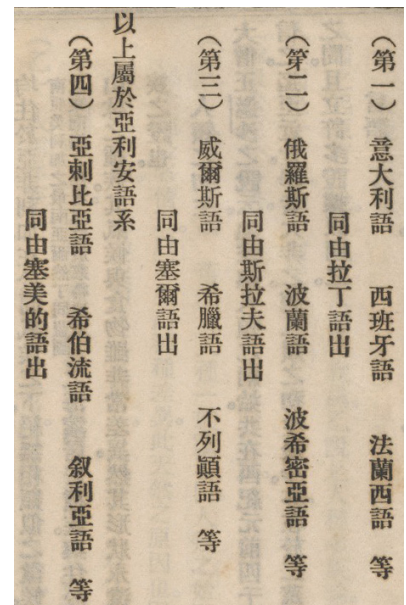 （第一）　意大利語　西班牙語　法蘭西語　等
同由拉丁語出
（第二）　俄羅斯語　波蘭語　波希密亞語　等
同由斯拉夫語出
（第三）　威爾斯語　希臘語　不列顚語　等
同由塞爾語出
以上屬於亞利安語系
（第四）　亞剌比亞語　希伯流語　敘利亞語　等
同由塞美的語出